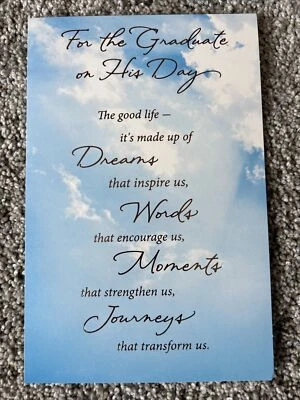 For the Graduate
on His Day
The good life —
it's made up of
Dreams
that inspire us,
Words
that encourage us,
Moments
that strengthen us,
Journeys
that transform us.